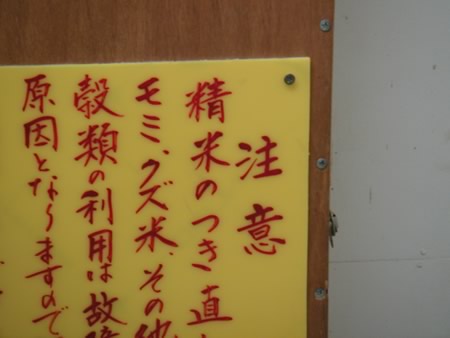 注意
精米のつき直
モミ、クズ米、その
穀類の利用は故障
原因となりますので